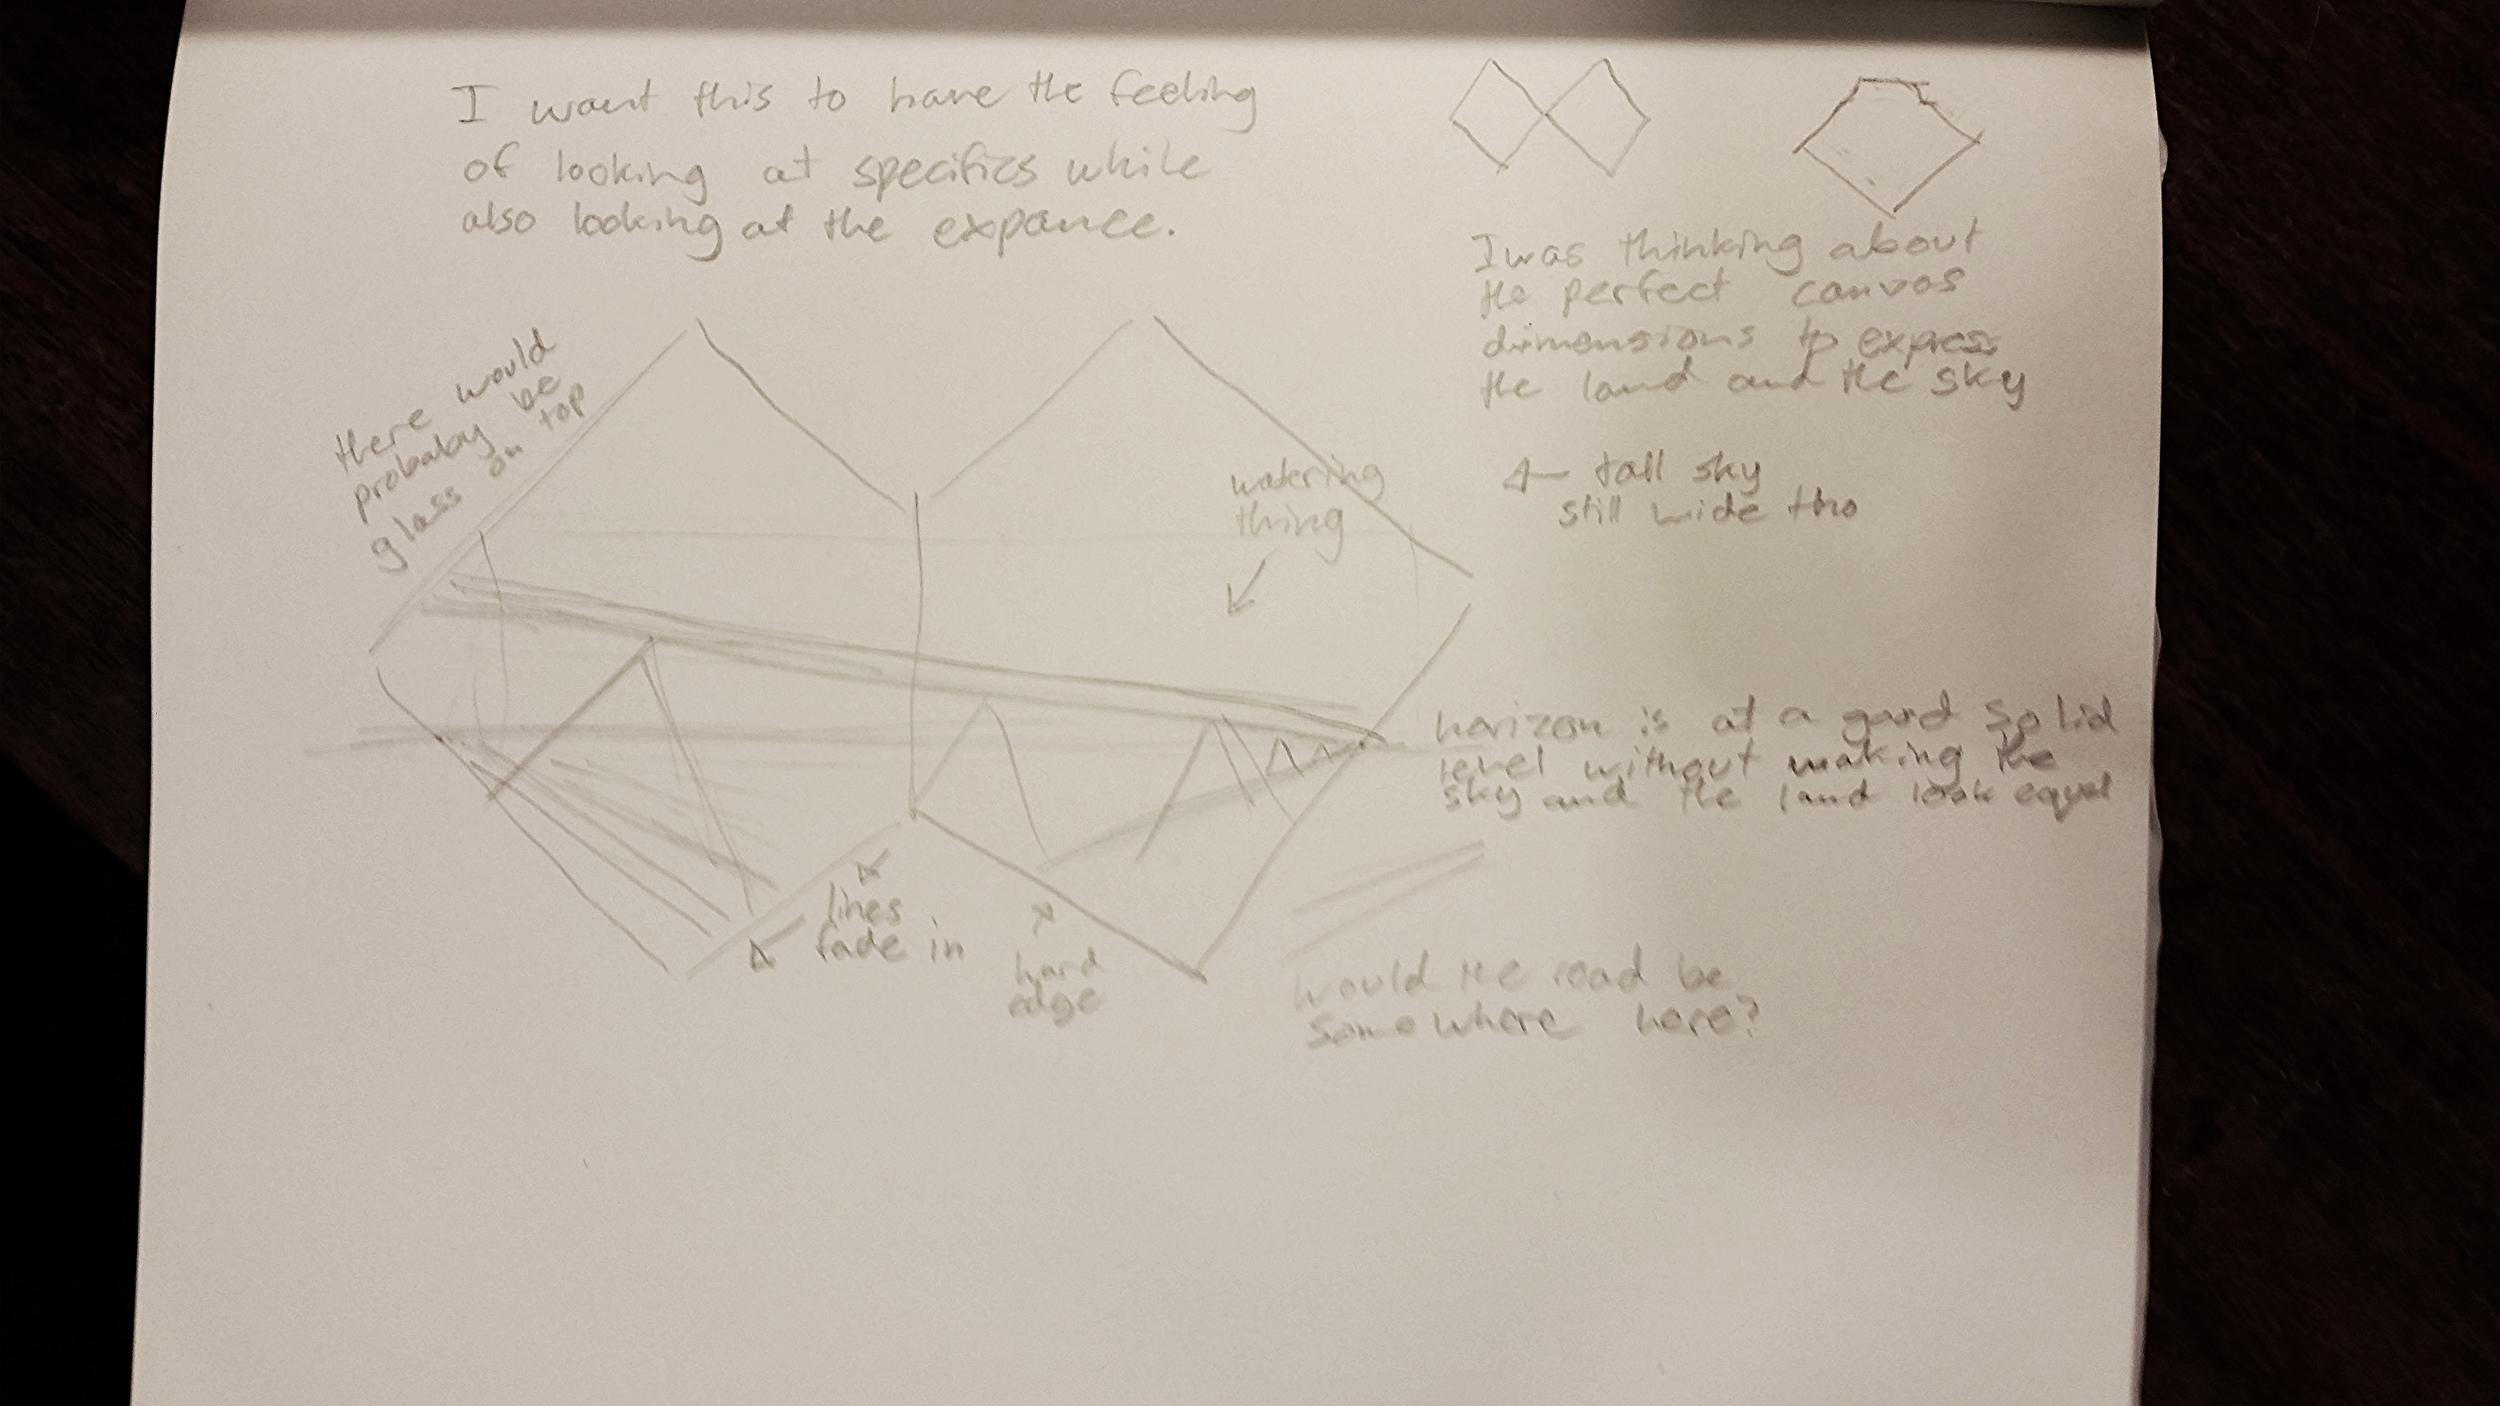 I want this to have the feeling
of looking at specifics while
also looking at the expance.
I was thinking about
the perfect canvas
dimensions to express
the land and the sky
tall sky
still wide tho
there would
probaby be
glass on top
watering
thing
horizon is at a good solid
level without making the
sky and the land look equal
lines
fade in
hard
edge
would the road be
somewhere here?